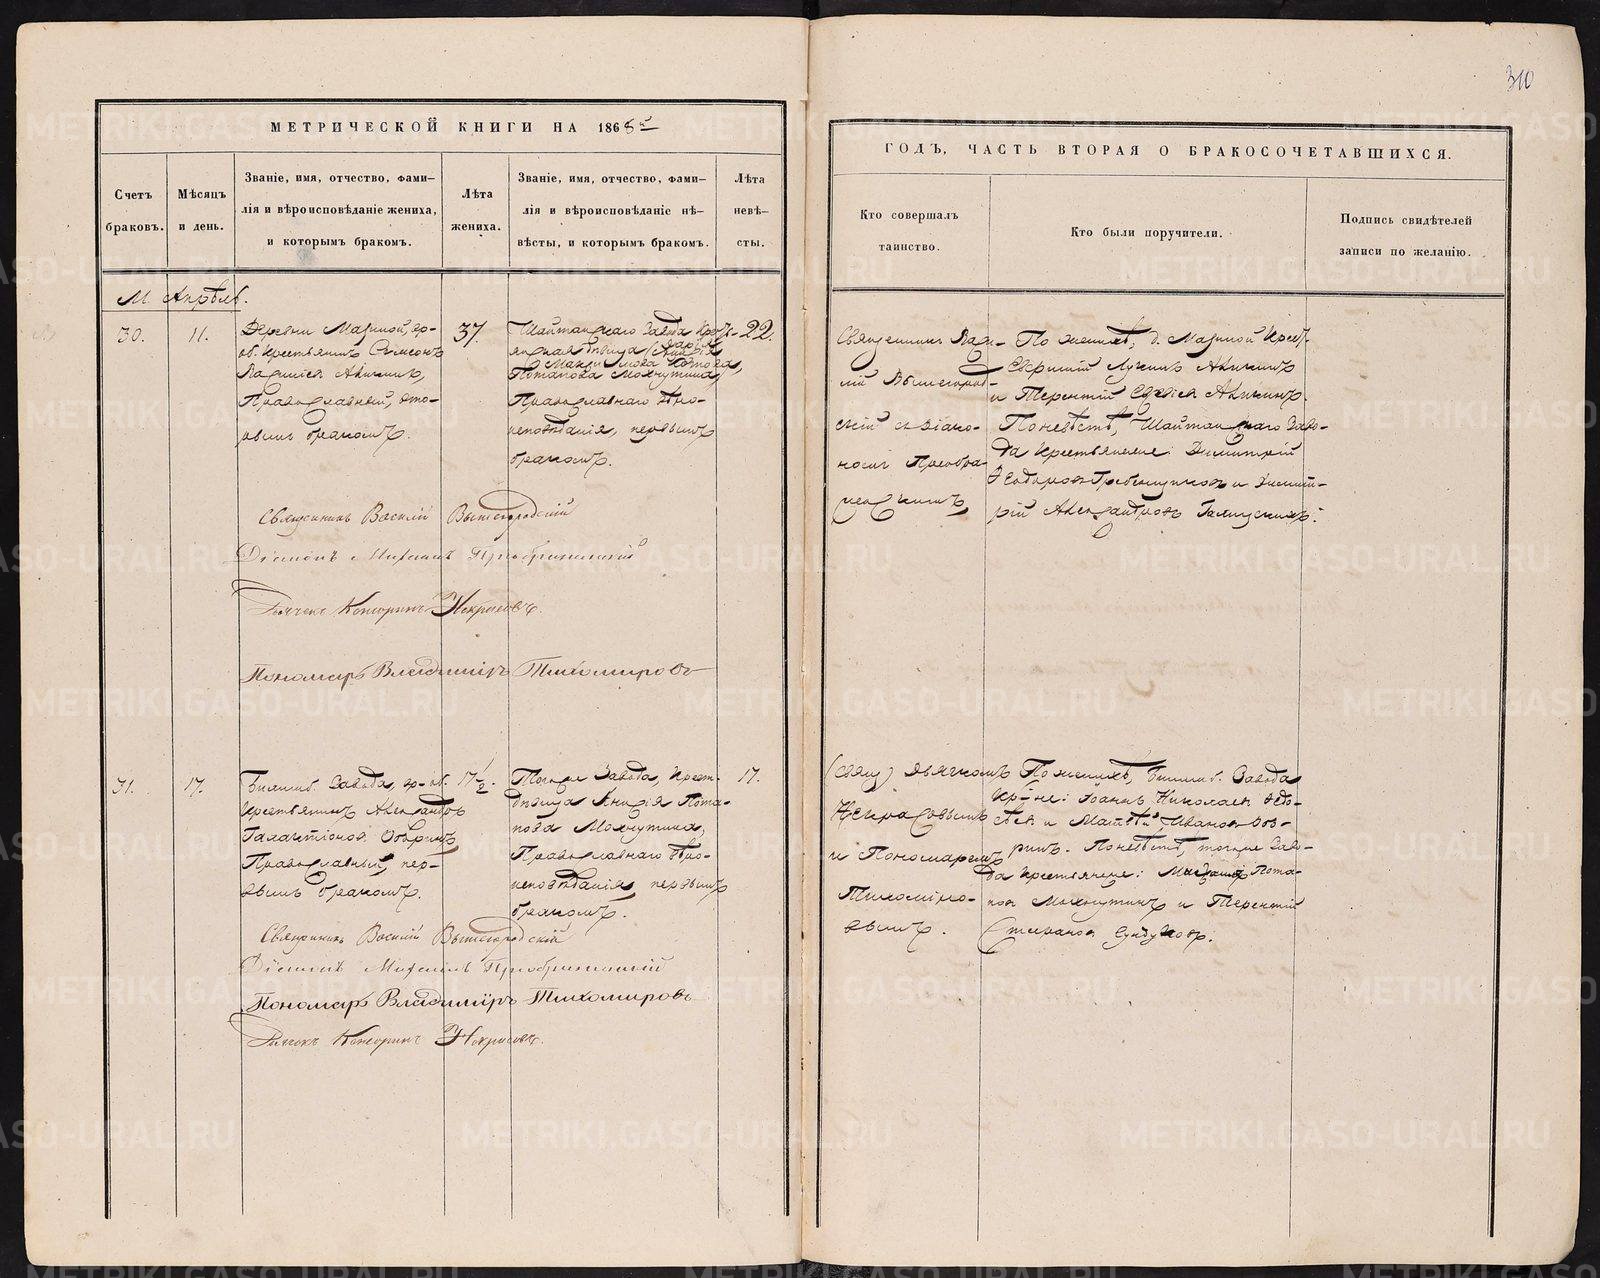 310
МЕТРИЧЕСКОЙ КНИГИ НА 1868й
ГОДЪ, ЧАСТЬ ВТОРАЯ О БРАКОСОЧЕТАВШИХСЯ.
Счетъ браковъ.
Мѣсяцъ и день.
Званіе, имя, отчество, фами-
лія и вѣроисповѣданіе жениха,
и которымъ бракомъ.
Лѣта
жениха.
Званіе, имя, отчество, фами-
лія и вѣроисповѣданіе не-
вѣсты, и которымъ бракомъ.
Лѣта
невѣ-
сты.
Кто совершалъ
таинство.
Кто были поручители.
Подпись свидѣтелей
записи по желанію.
М Апрѣль.
30.
11.
Деревни Мариной, вр-
об. крестьянинъ Симеонъ
Акининъ,
Православный, вто-
рымъ бракомъ.
37.
Шайтанскаго Завода Крест-
янская дѣвица
Потапова Мохнутина,
Православнаго вѣро-
исповѣданія, первымъ
бракомъ.
22.
Священникъ Васи-
лій Вышегород-
скій съ діако-
номъ Преобра-
женскимъ
По женихѣ, д. Мариной Крест.
Лукинъ Акининъ
и Терентій Акининъ.
По невѣстѣ, Шайтанскаго Заво-
да Крестьянене: Димитрій
Ѳеодоровъ Гребенщиковъ и Димит-
рій Александровъ Галицкихъ.
Священникъ Василій Вышегородскій
Діаконъ Михаилъ Преображенскій
Дьячекъ Некрасовъ.
Пономарь Владиміръ Тихомировъ
31.
17.
Билимб. Завода, вр-об.
Крестьянинъ Александръ
Галактіоновъ
Православный, пер-
вымъ бракомъ.
17 1/2.
Того же Завода, Крест.
дѣвица Пота-
пова Мохнутина,
Православнаго вѣро-
исповѣданія, первымъ
бракомъ.
17.
(Свящ) Дьячкомъ
Некрасовымъ
и Пономаремъ
Тихомиро-
вымъ.
По женихѣ, Билимб. Завода
Кр-не: Іоаннъ Николаевъ
и Матвѣй Ивановъ
По невѣстѣ, того же Заво-
да Крестьянене: Пота-
повъ Мохнутинъ и Терентій
Степановъ Сундуковъ.
Священникъ Василій Вышегородскій
Діаконъ Михаилъ Преображенскій
Пономарь Владиміръ Тихомировъ
Дьячокъ Некрасовъ.
METRIKI.GASO-URAL.RU